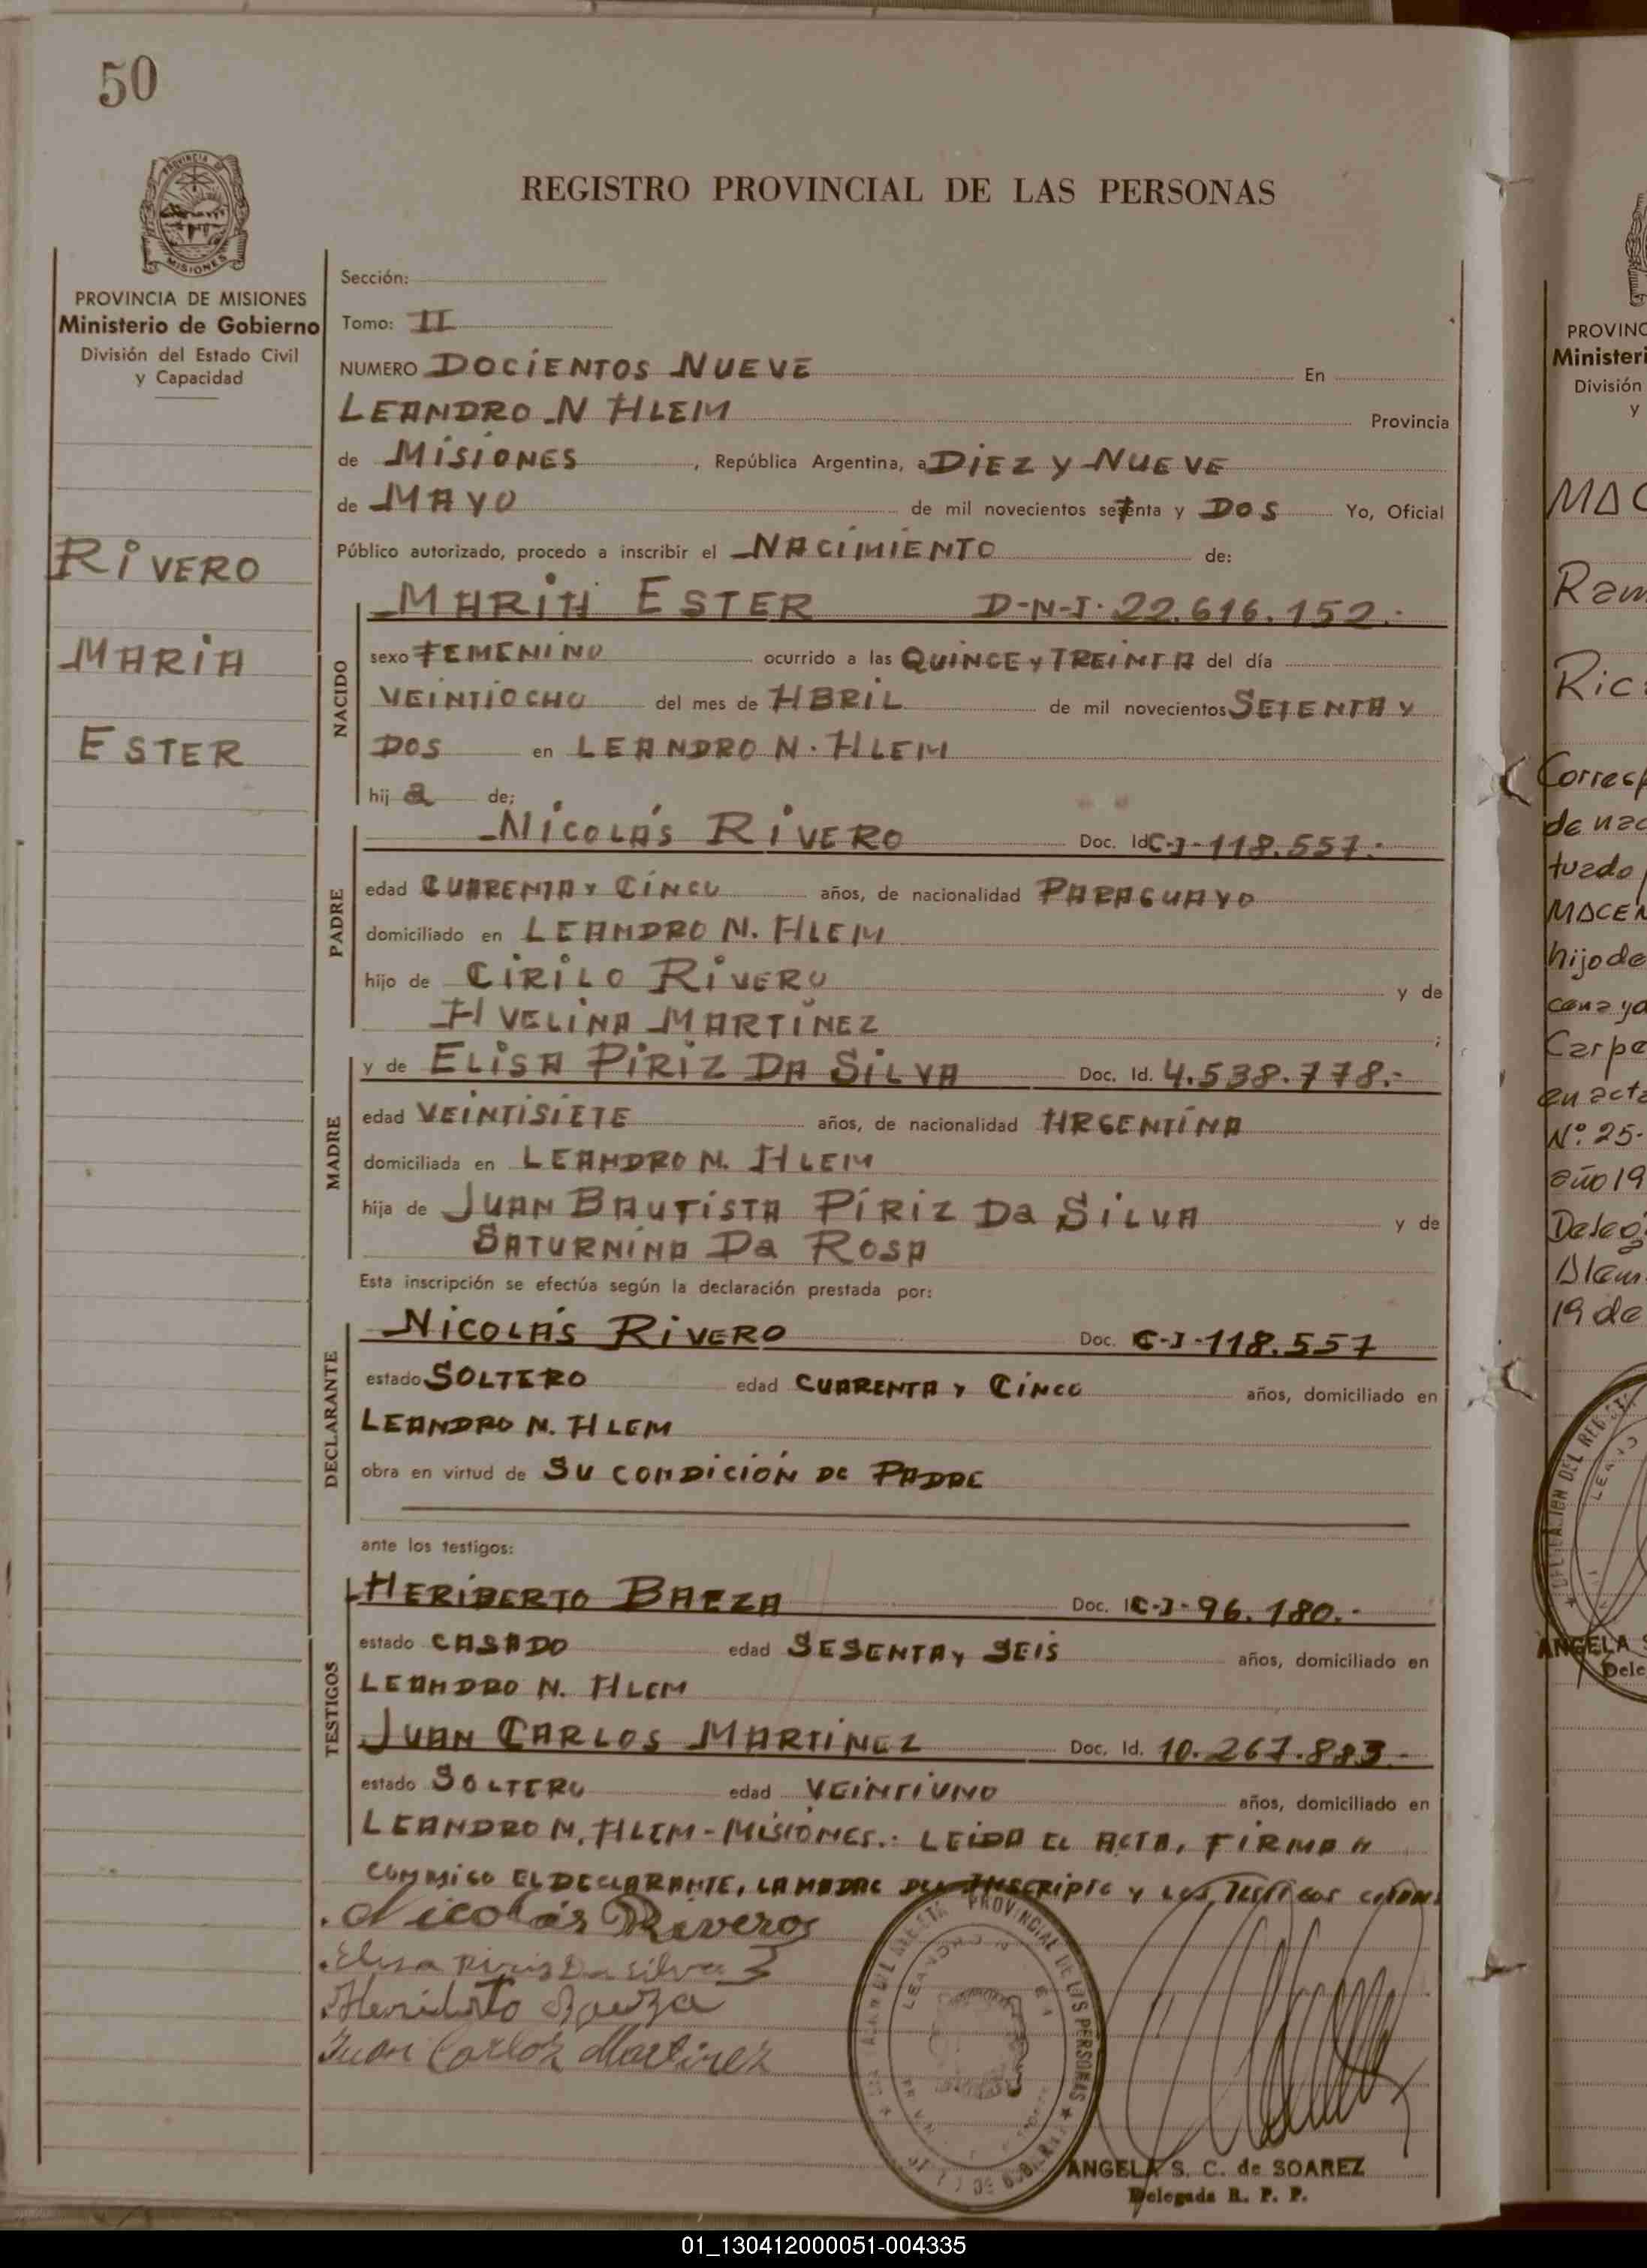 50
REGISTRO PROVINCIAL DE LAS PERSONAS
MISIONES
PROVINCIA DE MISIONES
Ministerio de Gobierno
División del Estado Civil
y Capacidad
RIVERO
MARIA
ESTER
Sección:
Tomo: II
NUMERO DOCIENTOS NUEVE En
LEANDRO N ALEM Provincia
de MISIONES, República Argentina, a DIEZ Y NUEVE
de MAYO de mil novecientos setenta y DOS Yo, Oficial
Público autorizado, procedo a inscribir el NACIMIENTO de:
NACIDO
MARIA ESTER D-N-I. 22.616.152.-
sexo FEMENINO ocurrido a las QUINCE Y TREINTA del día
VEINTIOCHO del mes de ABRIL de mil novecientos SETENTA Y
DOS en LEANDRO N. ALEM
hij a de;
PADRE
NICOLÁS RIVERO Doc. Id C-I-118.557.-
edad CUARENTA Y CINCO años, de nacionalidad PARAGUAYO
domiciliado en LEANDRO N. ALEM
hijo de CIRILO RIVERO y de
AVELINA MARTINEZ ;
MADRE
y de ELISA PIRIZ DA SILVA Doc. Id. 4.538.778.-
edad VEINTISIETE años, de nacionalidad ARGENTINA
domiciliada en LEANDRO N. ALEM
hija de JUAN BAUTISTA PIRIZ DA SILVA y de
SATURNINA DA ROSA
Esta inscripción se efectúa según la declaración prestada por:
DECLARANTE
NICOLÁS RIVERO Doc. C-I-118.557
estado SOLTERO edad CUARENTA Y CINCO años, domiciliado en
LEANDRO N. ALEM
obra en virtud de SU CONDICIÓN DE PADRE
ante los testigos:
TESTIGOS
HERIBERTO BAEZA Doc. I C-I-96.180.-
estado CASADO edad SESENTA Y SEIS años, domiciliado en
LEANDRO N. ALEM
JUAN CARLOS MARTINEZ Doc. Id. 10.267.883.-
estado SOLTERO edad VEINTIUNO años, domiciliado en
LEANDRO N. ALEM-MISIONES.: LEIDA EL ACTA, FIRMAN
CONMIGO EL DECLARANTE, LA MADRE DEL INSCRIPTO Y LOS TESTIGOS
Nicolás Riveros
Elisa Piriz Da silva
Heriberto Baeza
Juan Carlos Martinez
PROVINCIAL DE LAS PERSONAS
ANGELA S. C. de SOAREZ
Delegada R. P. P.
PROVINC
Ministeri
División
y
MAC
Ram
Ric
Corresp
de nac
tuado
MACEN
hijo de
Carpe
en acta
Nº 25-
año 19
Deleg
Alem
19 de
ANGELA S
Dele
01_130412000051-004335